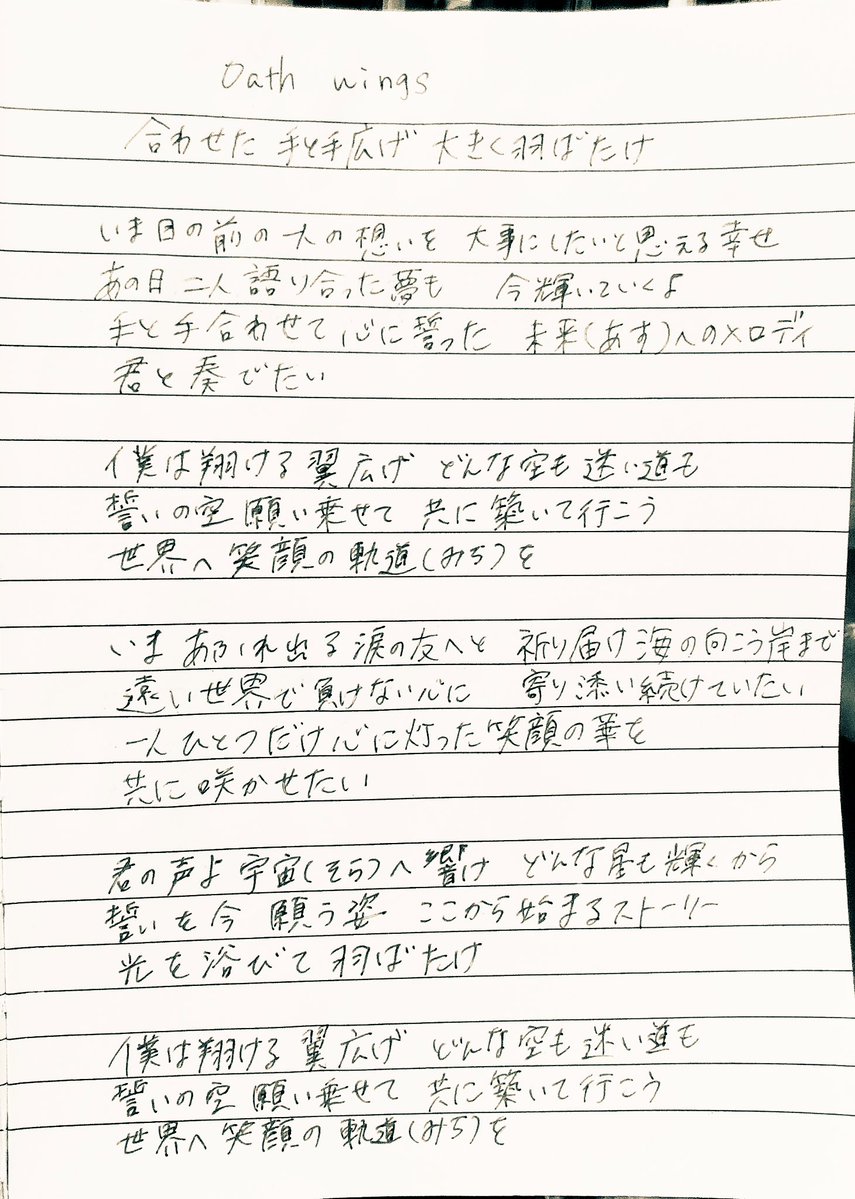 Oath wings
合わせた 手と手広げ 大きく羽ばたけ
いま目の前の人の想いを 大事にしたいと思える幸せ
あの日 二人 語り合った夢も 今輝いていくよ
手と手合わせて心に誓った 未来(あす)へのメロディ
君と奏でたい
僕は翔ける翼広げ どんな空も迷い道も
誓いの空 願い乗せて 共に築いて行こう
世界へ笑顔の軌道(みち)を
いま あふれ出る涙の友へと 祈り届け海の向こう岸まで
遠い世界で負けない心に 寄り添い続けていたい
一人ひとつだけ心に灯った笑顔の華を
共に咲かせたい
君の声よ宇宙(そら)へ響け どんな星も輝くから
誓いを今 願う姿 ここから始まるストーリー
光を浴びて羽ばたけ
僕は翔ける翼広げ どんな空も迷い道も
誓いの空 願い乗せて 共に築いて行こう
世界へ笑顔の軌道(みち)を